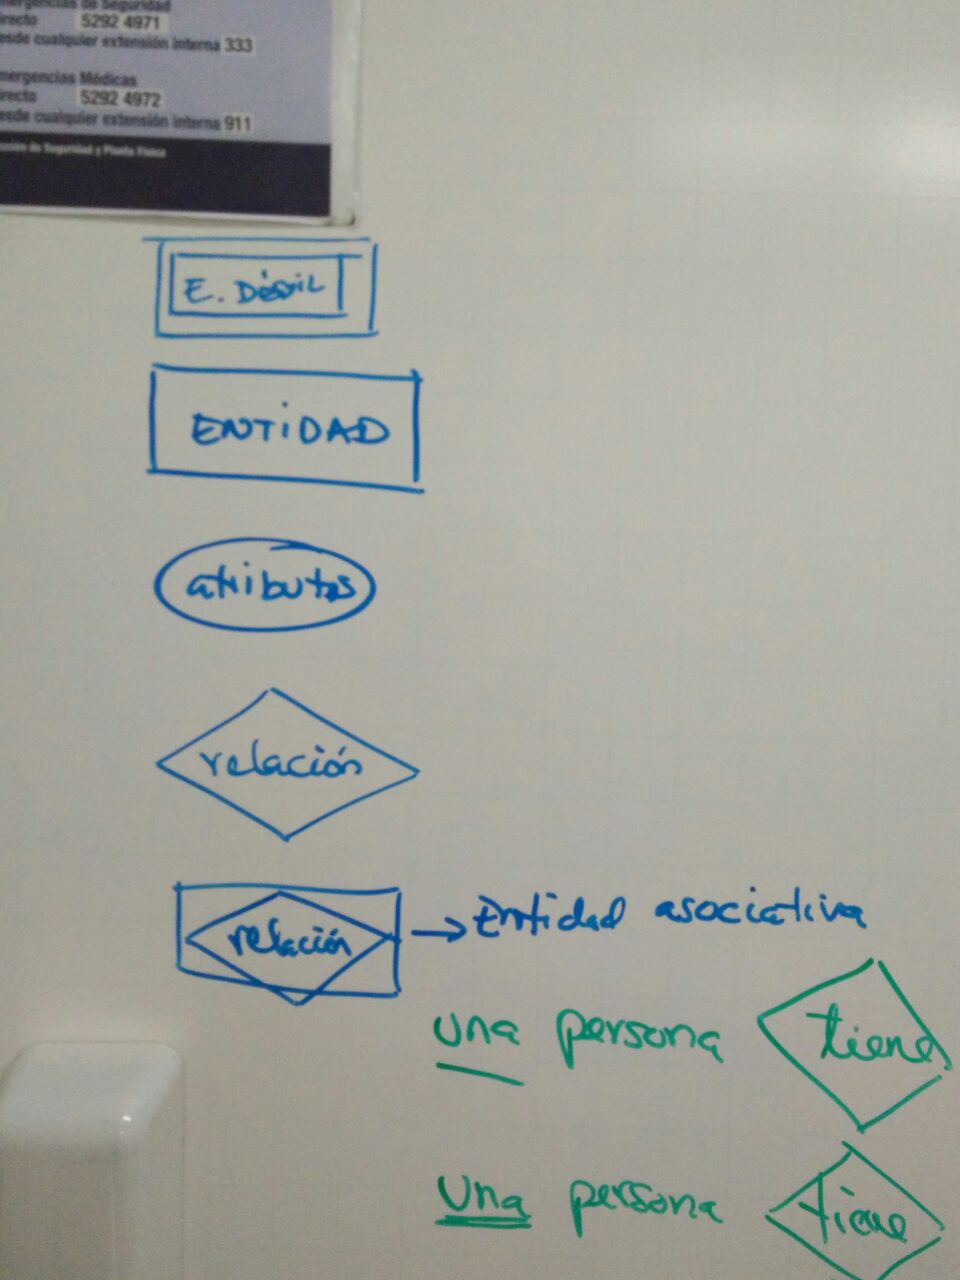 de Seguridad
5292 4971
cualquier extensión interna 333
Médicas
5292 4972
cualquier extensión interna 911
de Seguridad y Planta Física
E. Débil
ENTIDAD
atributos
relación
relación → Entidad asociativa
una persona tiene
Una persona tiene